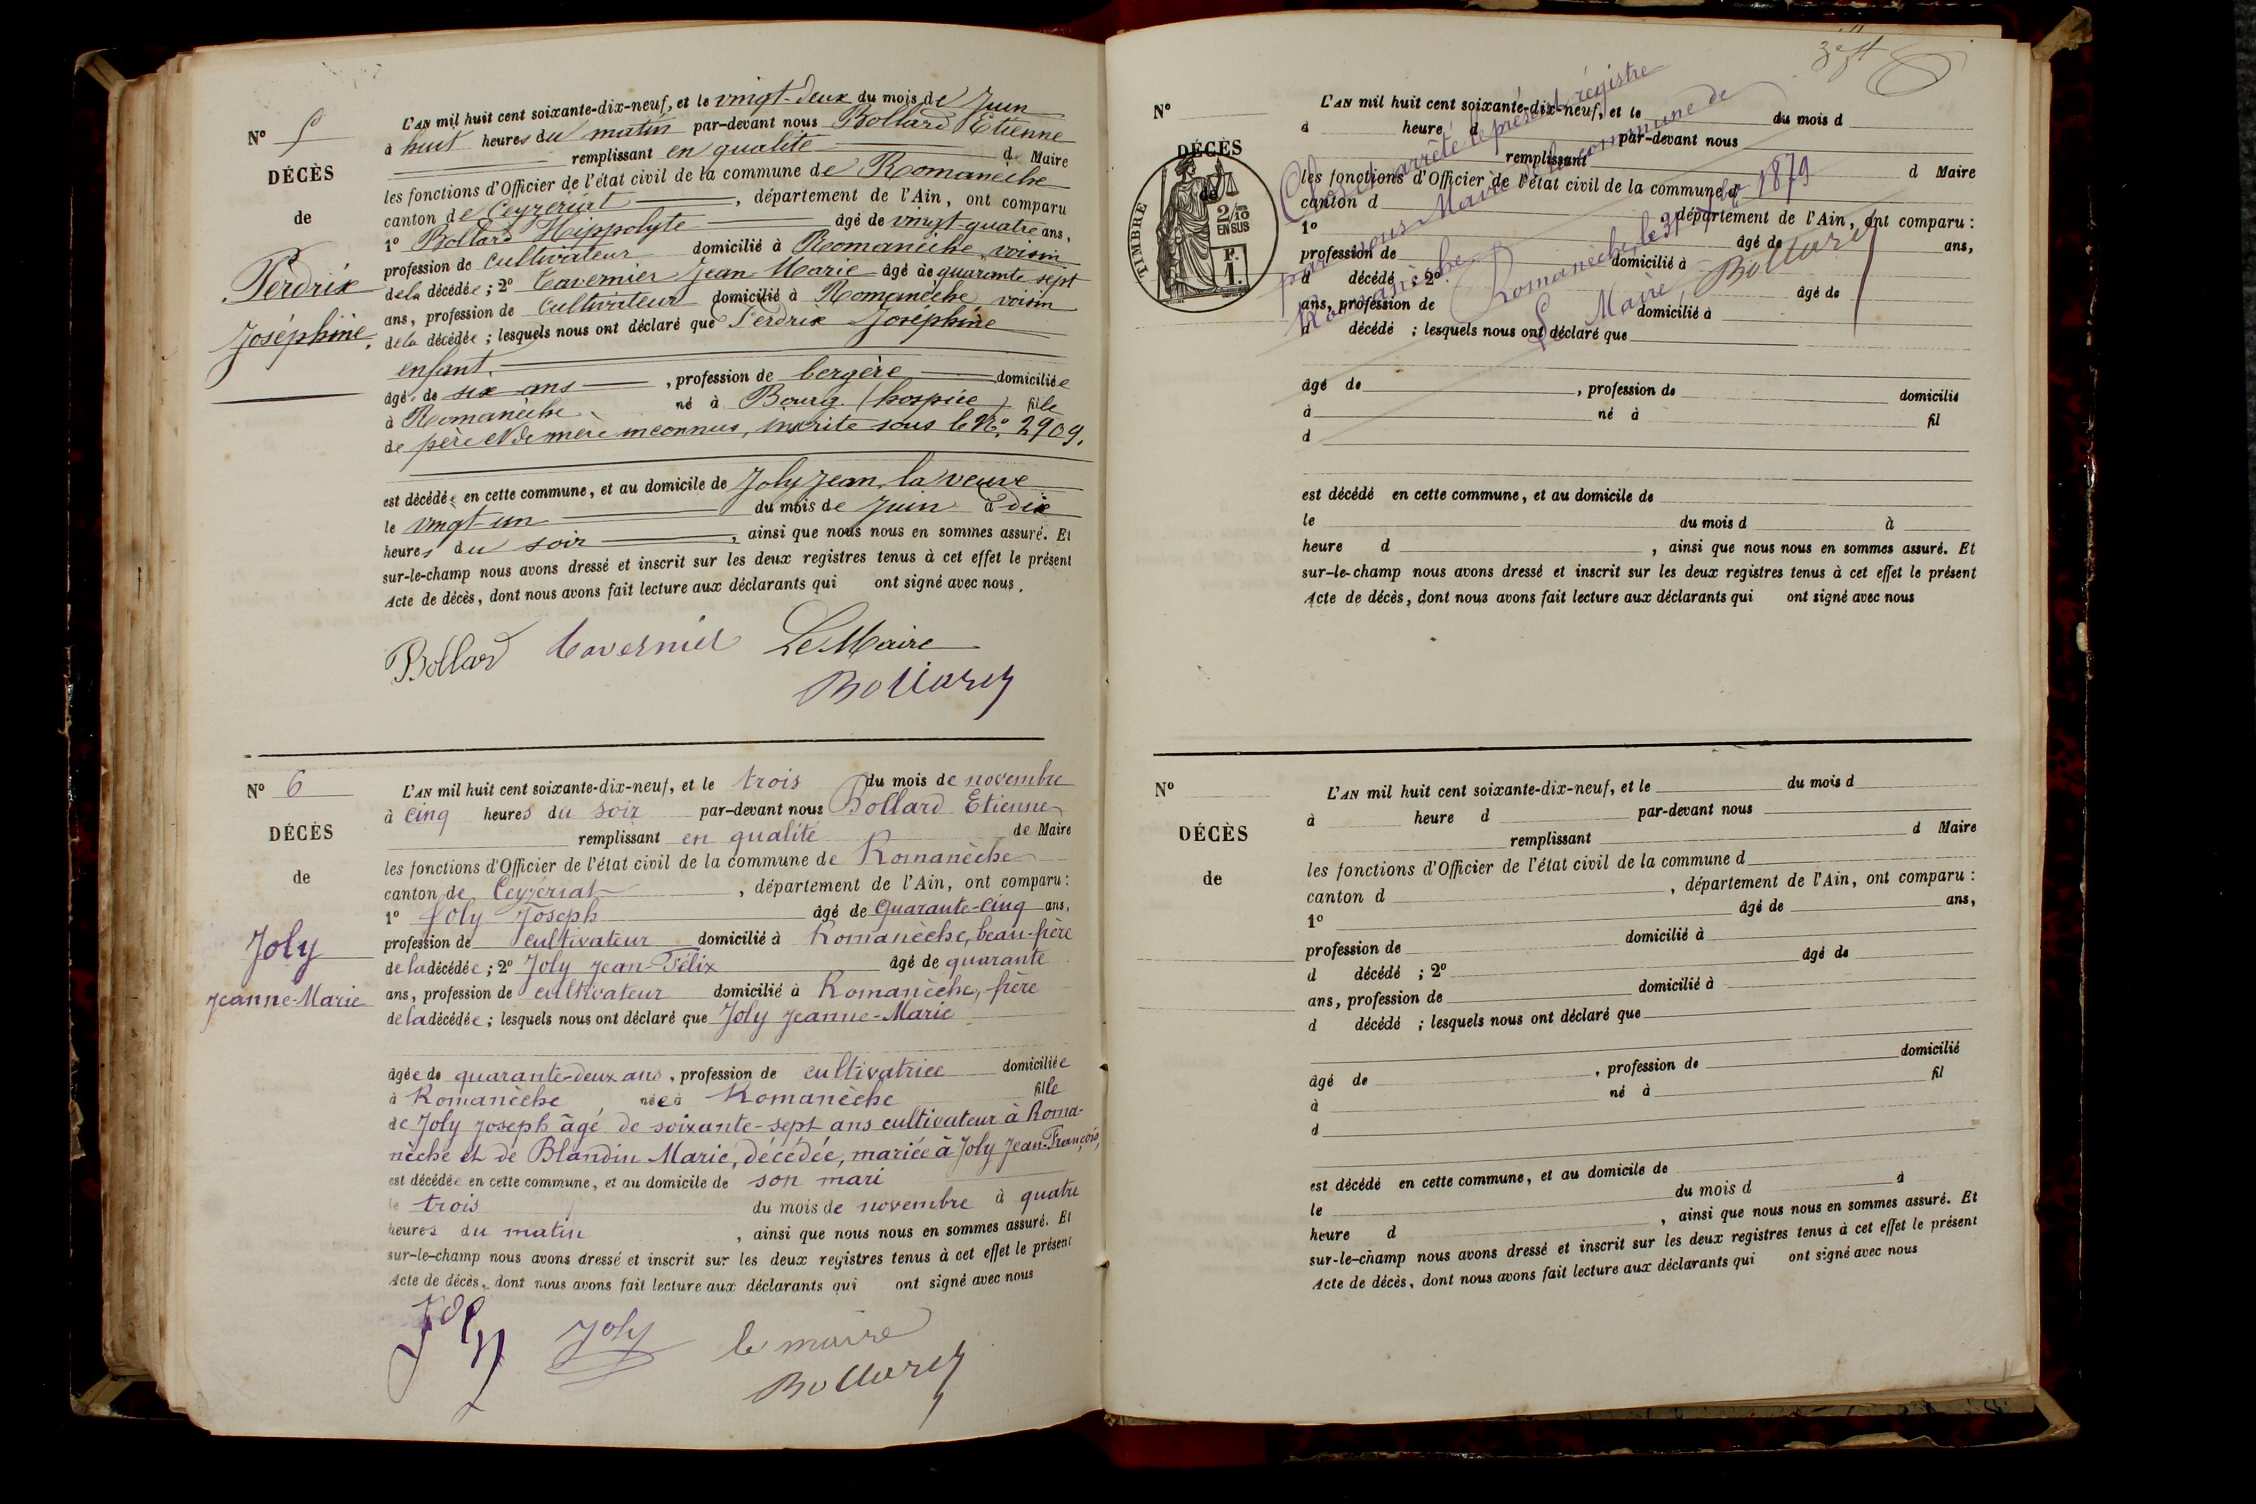 N° 5
DÉCÈS
de
Perdrix
Joséphine.
L'AN mil huit cent soixante-dix-neuf, et le vingt-deux du mois de Juin
à huit heures du matin par-devant nous Bollard Etienne
remplissant en qualité de Maire
les fonctions d'Officier de l'état civil de la commune de Romanèche
canton de Ceyzériat, département de l'Ain, ont comparu
1° Bollard Hippolyte âgé de vingt-quatre ans,
profession de cultivateur domicilié à Romanèche, voisin
de la décédée ; 2° Tavernier Jean Marie âgé de quarante sept
ans, profession de cultivateur domicilié à Romanèche voisin
de la décédée ; lesquels nous ont déclaré que Perdrix Josephine
enfant,
âgé de six ans, profession de bergère domiciliée
à Romanèche né à Bourg (hospice) fille
de père et de mère inconnus, inscrite sous le N°. 2909.
est décédée en cette commune, et au domicile de Joly Jean, la veuve
le vingt-un du mois de Juin à dix
heures du soir, ainsi que nous nous en sommes assuré. Et
sur-le-champ nous avons dressé et inscrit sur les deux registres tenus à cet effet le présent
Acte de décès, dont nous avons fait lecture aux déclarants qui ont signé avec nous.
Bollard Tavernier Le Maire
Bollard
N° 6
DÉCÈS
de
Joly
Jeanne-Marie
L'AN mil huit cent soixante-dix-neuf, et le trois du mois de novembre
à cinq heures du soir par-devant nous Bollard Etienne
remplissant en qualité de Maire
les fonctions d'Officier de l'état civil de la commune de Romanèche
canton de Ceyzériat, département de l'Ain, ont comparu :
1° Joly Joseph âgé de Quarante-cinq ans,
profession de cultivateur domicilié à Romanèche, beau-frère
de la décédée ; 2° Joly Jean-Félix âgé de quarante
ans, profession de cultivateur domicilié à Romanèche, frère
de la décédée ; lesquels nous ont déclaré que Joly Jeanne-Marie
âgée de quarante-deux ans, profession de cultivatrice domiciliée
à Romanèche née à Romanèche fille
de Joly Joseph âgé de soixante-sept ans cultivateur à Roma-
nèche et de Blandin Marie, décédée, mariée à Joly Jean-François,
est décédée en cette commune, et au domicile de son mari
le trois du mois de novembre à quatre
heures du matin, ainsi que nous nous en sommes assuré. Et
sur-le-champ nous avons dressé et inscrit sur les deux registres tenus à cet effet le présent
Acte de décès, dont nous avons fait lecture aux déclarants qui ont signé avec nous
Joly Joly le maire
Bollard
N°
DÉCÈS
de
TIMBRE
2/10
EN SUS
L'AN mil huit cent soixante-dix-neuf, et le du mois d
à heure d par-devant nous
remplissant d Maire
les fonctions d'Officier de l'état civil de la commune d
canton d département de l'Ain, ont comparu :
1° âgé de ans,
profession de domicilié à
d décédé 2° âgé de
ans, profession de domicilié à
d décédé ; lesquels nous ont déclaré que
âgé de , profession de domicilié
à né à fil
d
est décédé en cette commune, et au domicile de
le du mois d à
heure d , ainsi que nous nous en sommes assuré. Et
sur-le-champ nous avons dressé et inscrit sur les deux registres tenus à cet effet le présent
Acte de décès, dont nous avons fait lecture aux déclarants qui ont signé avec nous
Clos et arrêté le présent régistre
par nous Maire de la commune de
Romanèche
Romanèche, le 31 1879
Le Maire, Bollard
N°
DÉCÈS
de
L'AN mil huit cent soixante-dix-neuf, et le du mois d
à heure d par-devant nous
remplissant d Maire
les fonctions d'Officier de l'état civil de la commune d
canton d , département de l'Ain, ont comparu :
1° âgé de ans,
profession de domicilié à
d décédé ; 2° âgé de
ans, profession de domicilié à
d décédé ; lesquels nous ont déclaré que
âgé de , profession de domicilié
à né à fil
d
est décédé en cette commune, et au domicile de
le du mois d à
heure d , ainsi que nous nous en sommes assuré. Et
sur-le-champ nous avons dressé et inscrit sur les deux registres tenus à cet effet le présent
Acte de décès, dont nous avons fait lecture aux déclarants qui ont signé avec nous